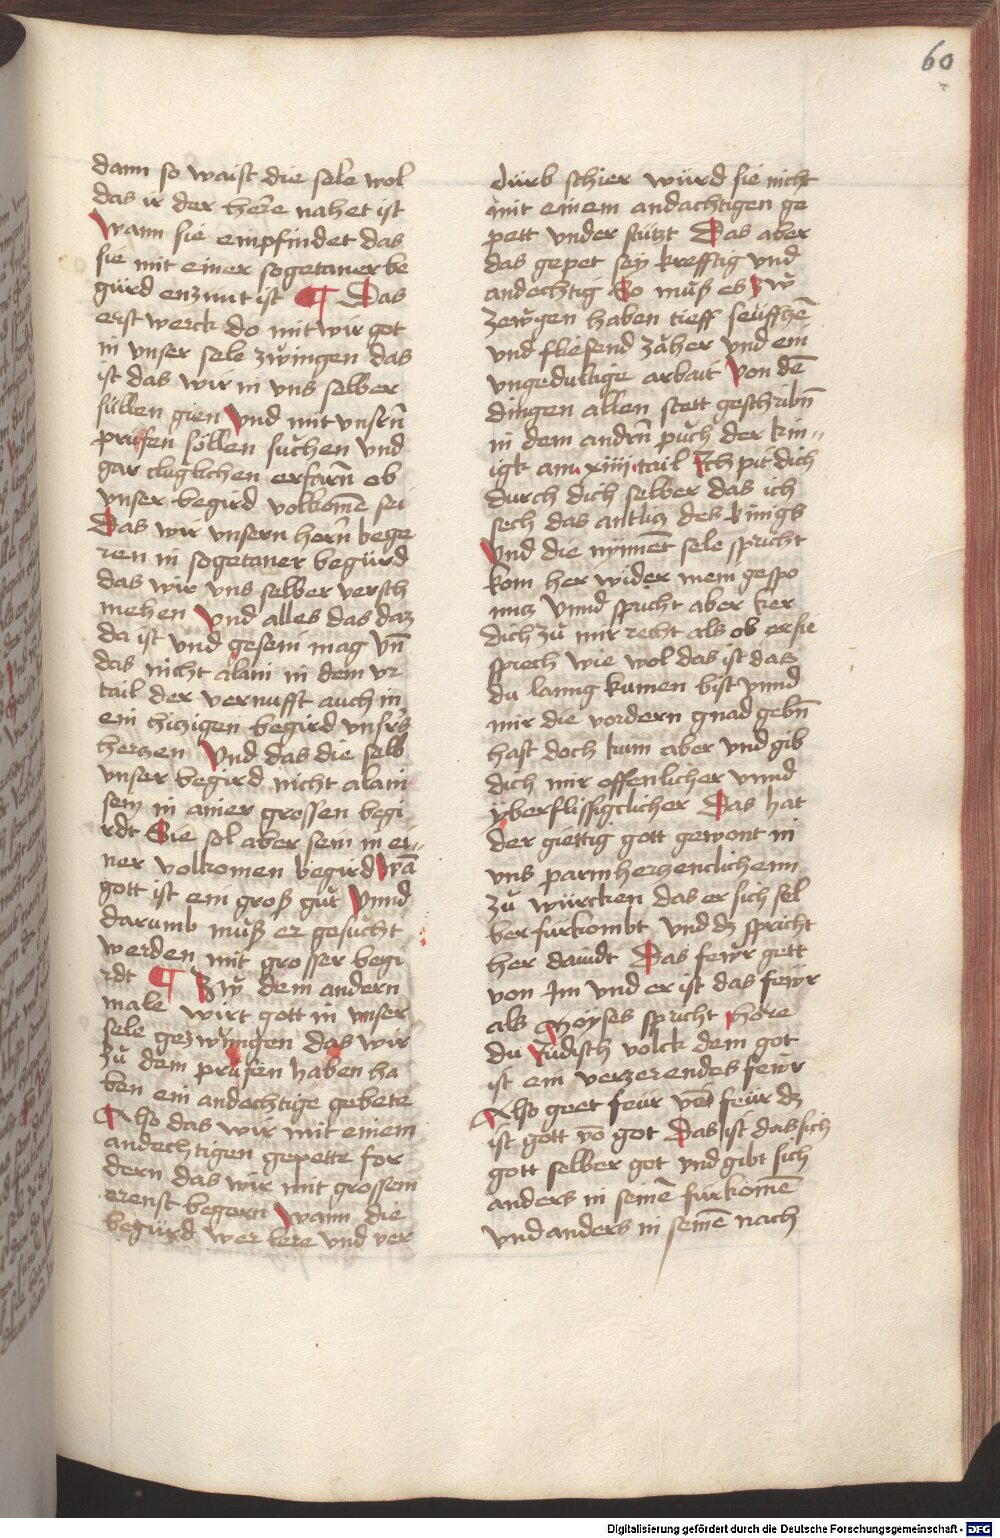 60
dann so waist die sele wol
das ir der here nahet ist
Wann sie empfindet das
sie mit einer sogetaner be
gürd enzunt ist ¶ Das
erst werck do mit wir got
in vnser sele zwingen das
ist das wir in vns selber
süllen gien Vnd mit vnsrn̄
prüfen söllen suchen vnd
gar cluglichen erfarn̄ ob
vnser begird volkomē sei
Das wir vnsern hern̄ bege
ren in sogetaner begürd
das wir vns selber versch
mehen Vnd alles das daz
da ist vnd gesein mag Vn̄
das nicht alain in dem vr
tail der vernufft auch in
ein hizigen begird vnsers
herzen Vnd das die selb
vnser begird nicht alain
sey in ainer grossen begi
rdt Sie sol aber sein in ei„
ner volkomen begird Wā
gott ist ein groß gůt Vnnd
darumb můß er gesucht
werden mit grosser begi
rdt ¶ Zw dem andern
male wirt gott in vnser
sele gezwungen das wir
zů dem prüfen haben ha
ben ein andechtige gebete
Also das wir mit einem
andechtigen gepette for
dern das wir mit grossem
erenst begern Wann die
begürd wer bere vnd ver
dürb schier würd sie nicht
mit einem andachtigen ge
pett vnder stützt Das aber
das gepet sey krefftig vnd
andechtig So můß es Zw
zewgen haben tieff seuffzē
vnd fliesend zäher Vnd ein
vngedultige arbait Von dē
dingen allen stett geschribn̄
in dem andrn̄ půch der kin„
igk am xiiii tail Ich pit dich
durch dich selber das ich
sech das antlicz des kinigs
Vnd die nÿmēt sele spricht
kom her wider mein gespo
nnz Vnnd spricht aber ker
dich zů mir recht als ob er sie
sprech wie wol das ist das
du lanng kumen bist vnnd
mir die vordern gnad gebn̄
hast doch kum aber vnd gib
dich mir offenlicher vnnd
yberflissigclicher Das hat
der giettig gott gewont in
vns parmherzenclichenn
zů würcken das er sich sel
ber fürkombt Vnd dz spricht
her dauidt Das fewr gett
von Im vnd er ist das fewr
als Moyses spricht Höre
du Jüdisch volck dem got
ist ein verzerendes fewr
Also geet feur vō feür dz
ist gott vō got Das ist das sich
gott selber get vnd gibt sich
anders in seinē fürkomē
vnd anders in seinē nach
Digitalisierung gefördert durch die Deutsche Forschungsgemeinschaft - DFG